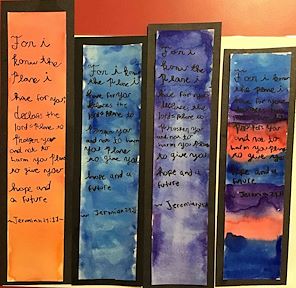 For i
know the
plans i
have for you,
declares the
lord plans to
prosper you
and not to
harm you plans
to give you
hope and a
future
~Jeremiah 29:11~
For i know
the plans i
have for you
declares the
lord plans to
prosper you
and not to harm
you plans
to give you
hope and a
future
~Jeremiah 29:11
For i
know the
plans i
have for you
declares the
lord plans to
prosper you
and not to
harm you plans
to give you
hope and a
future
~Jeremiah
For i know
the plans i
have for you
declares the
lord plans to
prosper you
and not to
harm you plans
to give you
hope and a
future
~Jeremiah 29:11